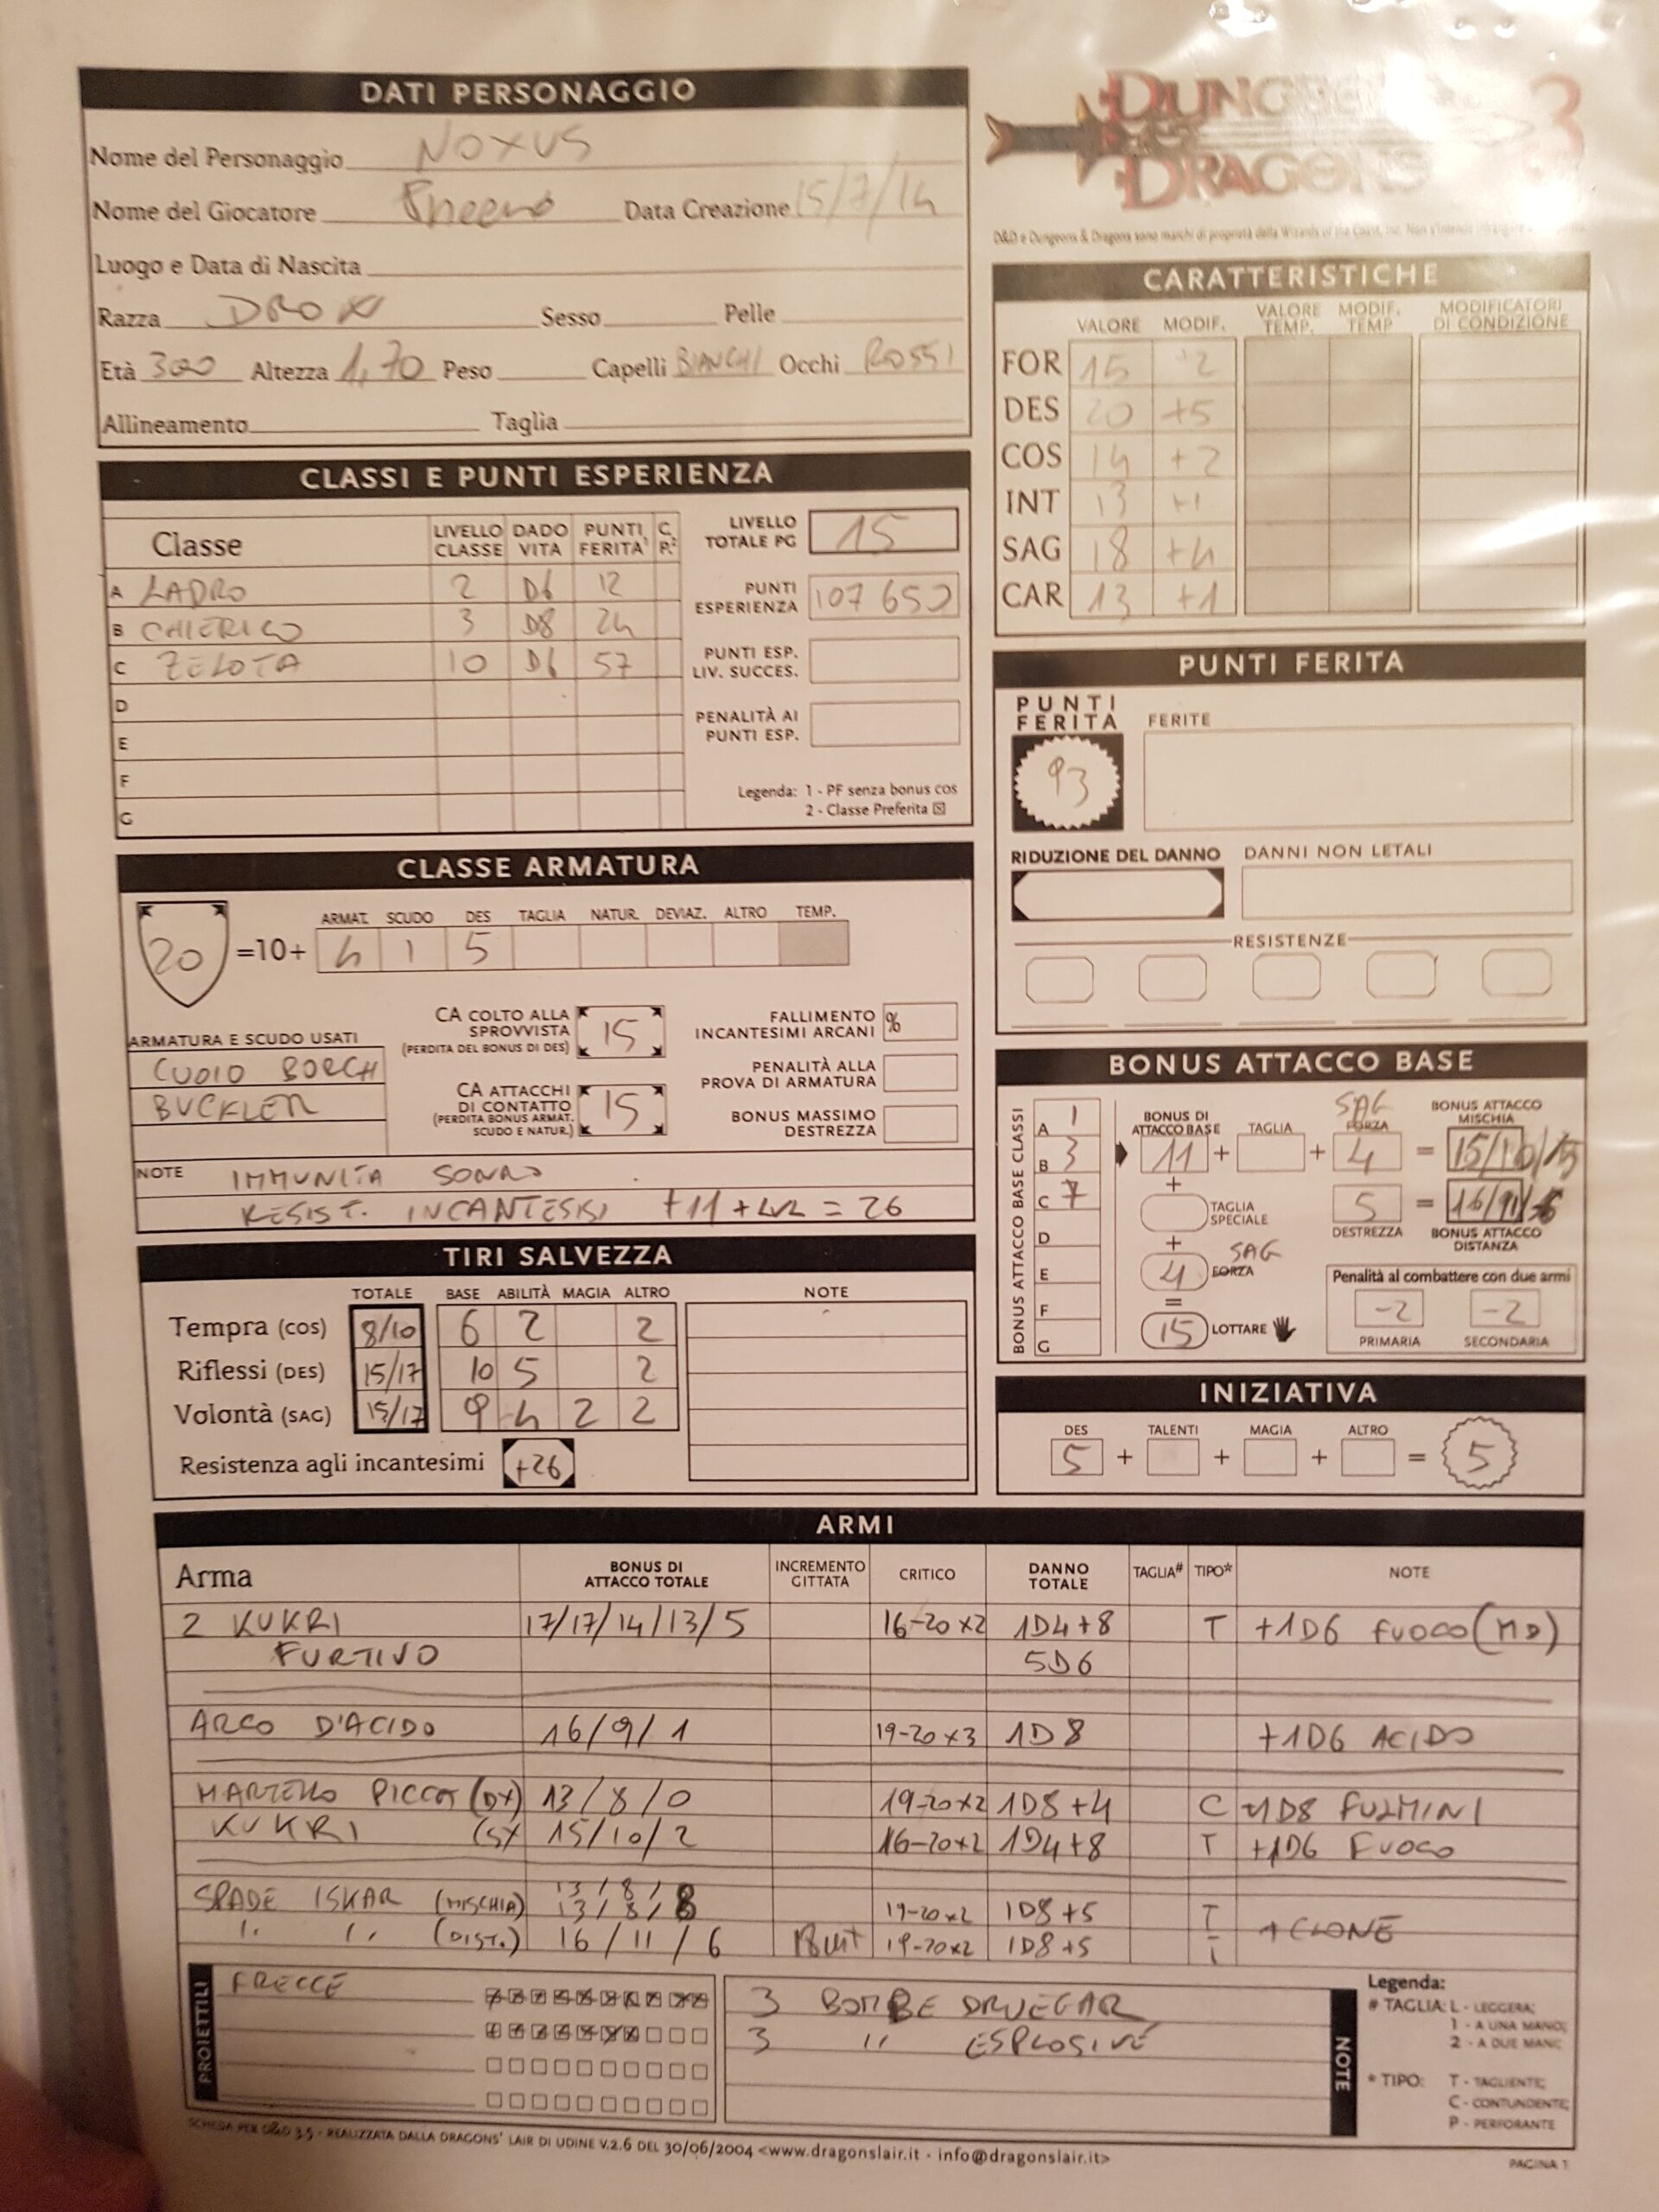 DATI PERSONAGGIO
Nome del Personaggio NOXUS
Nome del Giocatore Data Creazione 15/7/14
Luogo e Data di Nascita
Razza DROW Sesso Pelle
Età 300 Altezza 1,70 Peso Capelli BIANCHI Occhi ROSSI
Allineamento Taglia
DUNGEONS & DRAGONS 3
D&D e Dungeons & Dragons sono marchi di proprietà della Wizards of the Coast, Inc. Non s'intende
CARATTERISTICHE
VALORE MODIF. VALORE TEMP. MODIF. TEMP MODIFICATORI DI CONDIZIONE
FOR 15 +2
DES 20 +5
COS 14 +2
INT 13 +1
SAG 18 +4
CAR 13 +1
CLASSI E PUNTI ESPERIENZA
Classe LIVELLO CLASSE DADO VITA PUNTI FERITA¹ C. P.²
A LADRO 2 D6 12
B CHIERICO 3 D8 24
C ZELOTA 10 D6 57
D
E
F
G
LIVELLO TOTALE PG 15
PUNTI ESPERIENZA 107 650
PUNTI ESP. LIV. SUCCES.
PENALITÀ AI PUNTI ESP.
Legenda: 1 - PF senza bonus cos
2 - Classe Preferita ☒
PUNTI FERITA
PUNTI FERITA 93 FERITE
RIDUZIONE DEL DANNO DANNI NON LETALI
RESISTENZE
CLASSE ARMATURA
ARMAT. SCUDO DES TAGLIA NATUR. DEVIAZ. ALTRO TEMP.
20 =10+ 4 1 5
ARMATURA E SCUDO USATI
CUOIO BORCH
BUCKLER
CA COLTO ALLA SPROVVISTA (PERDITA DEL BONUS DI DES) 15
CA ATTACCHI DI CONTATTO (PERDITA BONUS ARMAT. SCUDO E NATUR.) 15
FALLIMENTO INCANTESIMI ARCANI %
PENALITÀ ALLA PROVA DI ARMATURA
BONUS MASSIMO DESTREZZA
NOTE IMMUNITA SONNO
RESIST. INCANTESIMI +11 + LVL = 26
BONUS ATTACCO BASE
BONUS ATTACCO BASE CLASSI
A 1
B 3
C 7
D
E
F
G
BONUS DI ATTACCO BASE TAGLIA SAG FORZA BONUS ATTACCO MISCHIA
11 + + 4 = 15/10/5
+ TAGLIA SPECIALE 5 DESTREZZA = 16/11/6 BONUS ATTACCO DISTANZA
+ 4 SAG FORZA
= 15 LOTTARE
Penalità al combattere con due armi
-2 -2
PRIMARIA SECONDARIA
TIRI SALVEZZA
TOTALE BASE ABILITÀ MAGIA ALTRO NOTE
Tempra (COS) 8/10 6 2 2
Riflessi (DES) 15/17 10 5 2
Volontà (SAG) 15/17 9 4 2 2
Resistenza agli incantesimi +26
INIZIATIVA
DES TALENTI MAGIA ALTRO
5 + + + = 5
ARMI
Arma BONUS DI ATTACCO TOTALE INCREMENTO GITTATA CRITICO DANNO TOTALE TAGLIA# TIPO* NOTE
2 KUKRI 17/17/14/13/5 16-20x2 1D4+8 T +1D6 FUOCO (MD)
FURTIVO 5D6
ARCO D'ACIDO 16/9/1 19-20x3 1D8 +1D6 ACIDO
MARTELLO (DX) 13/8/0 19-20x2 1D8+4 C +1D8 FULMINI
KUKRI (SX 15/10/2 16-20x2 1D4+8 T +1D6 FUOCO
13/8/
SPADE ISKAR (MISCHIA) 13/8/8 19-20x2 1D8+5 T +CLONE
" " (DIST.) 16/11/6 19-20x2 1D8+5 T
PROIETTILI
FRECCE
3 BOMBE DRUEGAR
3 " ESPLOSIVE
NOTE
Legenda:
# TAGLIA: L - LEGGERA;
1 - A UNA MANO;
2 - A DUE MANI;
* TIPO: T - TAGLIENTE;
C - CONTUNDENTE;
P - PERFORANTE
SCHEDA PER D&D 3.5 - REALIZZATA DALLA DRAGONS' LAIR DI UDINE V.2.6 DEL 30/06/2004 <www.dragonslair.it - info@dragonslair.it>
PAGINA 1